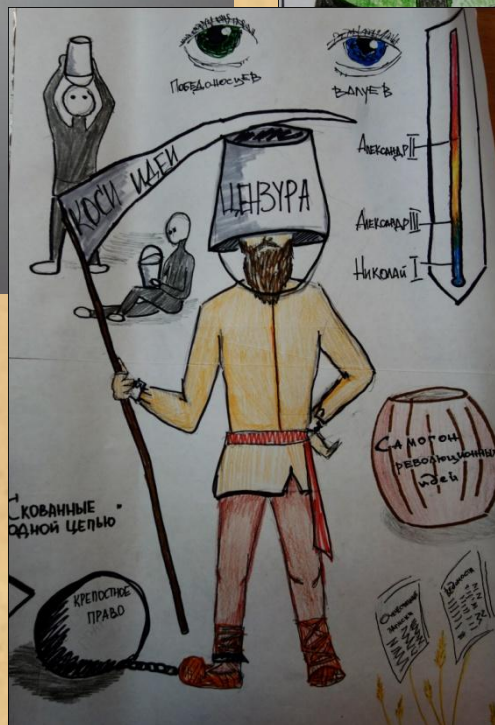 Победоносцев
Валуев
Александр II
Александр III
Николай I
КОСИ ИДЕИ
ЦЕНЗУРА
САМОГОН
РЕВОЛЮЦИОННЫХ
ИДЕЙ
СКОВАННЫЕ
ОДНОЙ ЦЕПЬЮ"
КРЕПОСТНОЕ
ПРАВО